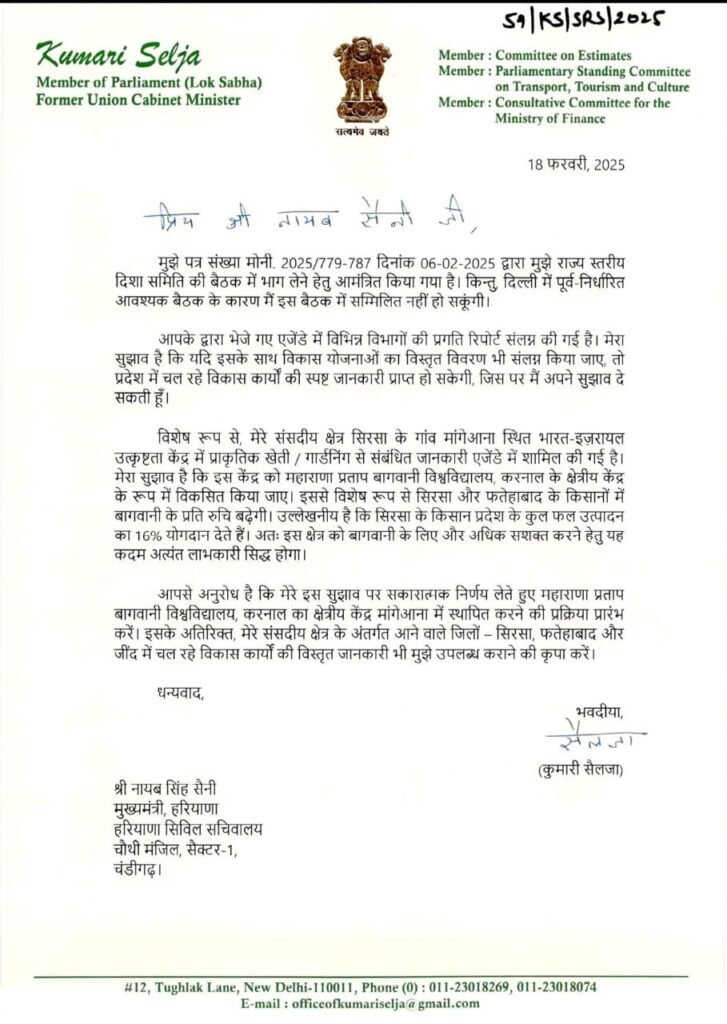 59/KS/SRS/2025
Kumari Selja
Member of Parliament (Lok Sabha)
Former Union Cabinet Minister
सत्यमेव जयते
Member : Committee on Estimates
Member : Parliamentary Standing Committee
on Transport, Tourism and Culture
Member : Consultative Committee for the
Ministry of Finance
18 फरवरी, 2025
प्रिय श्री नायब सैनी जी,
मुझे पत्र संख्या मोनी. 2025/779-787 दिनांक 06-02-2025 द्वारा मुझे राज्य स्तरीय
दिशा समिति की बैठक में भाग लेने हेतु आमंत्रित किया गया है। किन्तु, दिल्ली में पूर्व-निर्धारित
आवश्यक बैठक के कारण मैं इस बैठक में सम्मिलित नहीं हो सकूंगी।
आपके द्वारा भेजे गए एजेंडे में विभिन्न विभागों की प्रगति रिपोर्ट संलग्न की गई है। मेरा
सुझाव है कि यदि इसके साथ विकास योजनाओं का विस्तृत विवरण भी संलग्न किया जाए, तो
प्रदेश में चल रहे विकास कार्यों की स्पष्ट जानकारी प्राप्त हो सकेगी, जिस पर मैं अपने सुझाव दे
सकती हूँ।
विशेष रूप से, मेरे संसदीय क्षेत्र सिरसा के गांव मांगेआना स्थित भारत-इज़रायल
उत्कृष्टता केंद्र में प्राकृतिक खेती / गार्डनिंग से संबंधित जानकारी एजेंडे में शामिल की गई है।
मेरा सुझाव है कि इस केंद्र को महाराणा प्रताप बागवानी विश्वविद्यालय, करनाल के क्षेत्रीय केंद्र
के रूप में विकसित किया जाए। इससे विशेष रूप से सिरसा और फतेहाबाद के किसानों में
बागवानी के प्रति रुचि बढ़ेगी। उल्लेखनीय है कि सिरसा के किसान प्रदेश के कुल फल उत्पादन
का 16% योगदान देते हैं। अतः इस क्षेत्र को बागवानी के लिए और अधिक सशक्त करने हेतु यह
कदम अत्यंत लाभकारी सिद्ध होगा।
आपसे अनुरोध है कि मेरे इस सुझाव पर सकारात्मक निर्णय लेते हुए महाराणा प्रताप
बागवानी विश्वविद्यालय, करनाल का क्षेत्रीय केंद्र मांगेआना में स्थापित करने की प्रक्रिया प्रारंभ
करें। इसके अतिरिक्त, मेरे संसदीय क्षेत्र के अंतर्गत आने वाले जिलों – सिरसा, फतेहाबाद और
जींद में चल रहे विकास कार्यों की विस्तृत जानकारी भी मुझे उपलब्ध कराने की कृपा करें।
धन्यवाद,
भवदीया,
सैलजा
(कुमारी सैलजा)
श्री नायब सिंह सैनी
मुख्यमंत्री, हरियाणा
हरियाणा सिविल सचिवालय
चौथी मंजिल, सैक्टर-1,
चंडीगढ़।
#12, Tughlak Lane, New Delhi-110011, Phone (0) : 011-23018269, 011-23018074
E-mail : officeofkumariselja@gmail.com